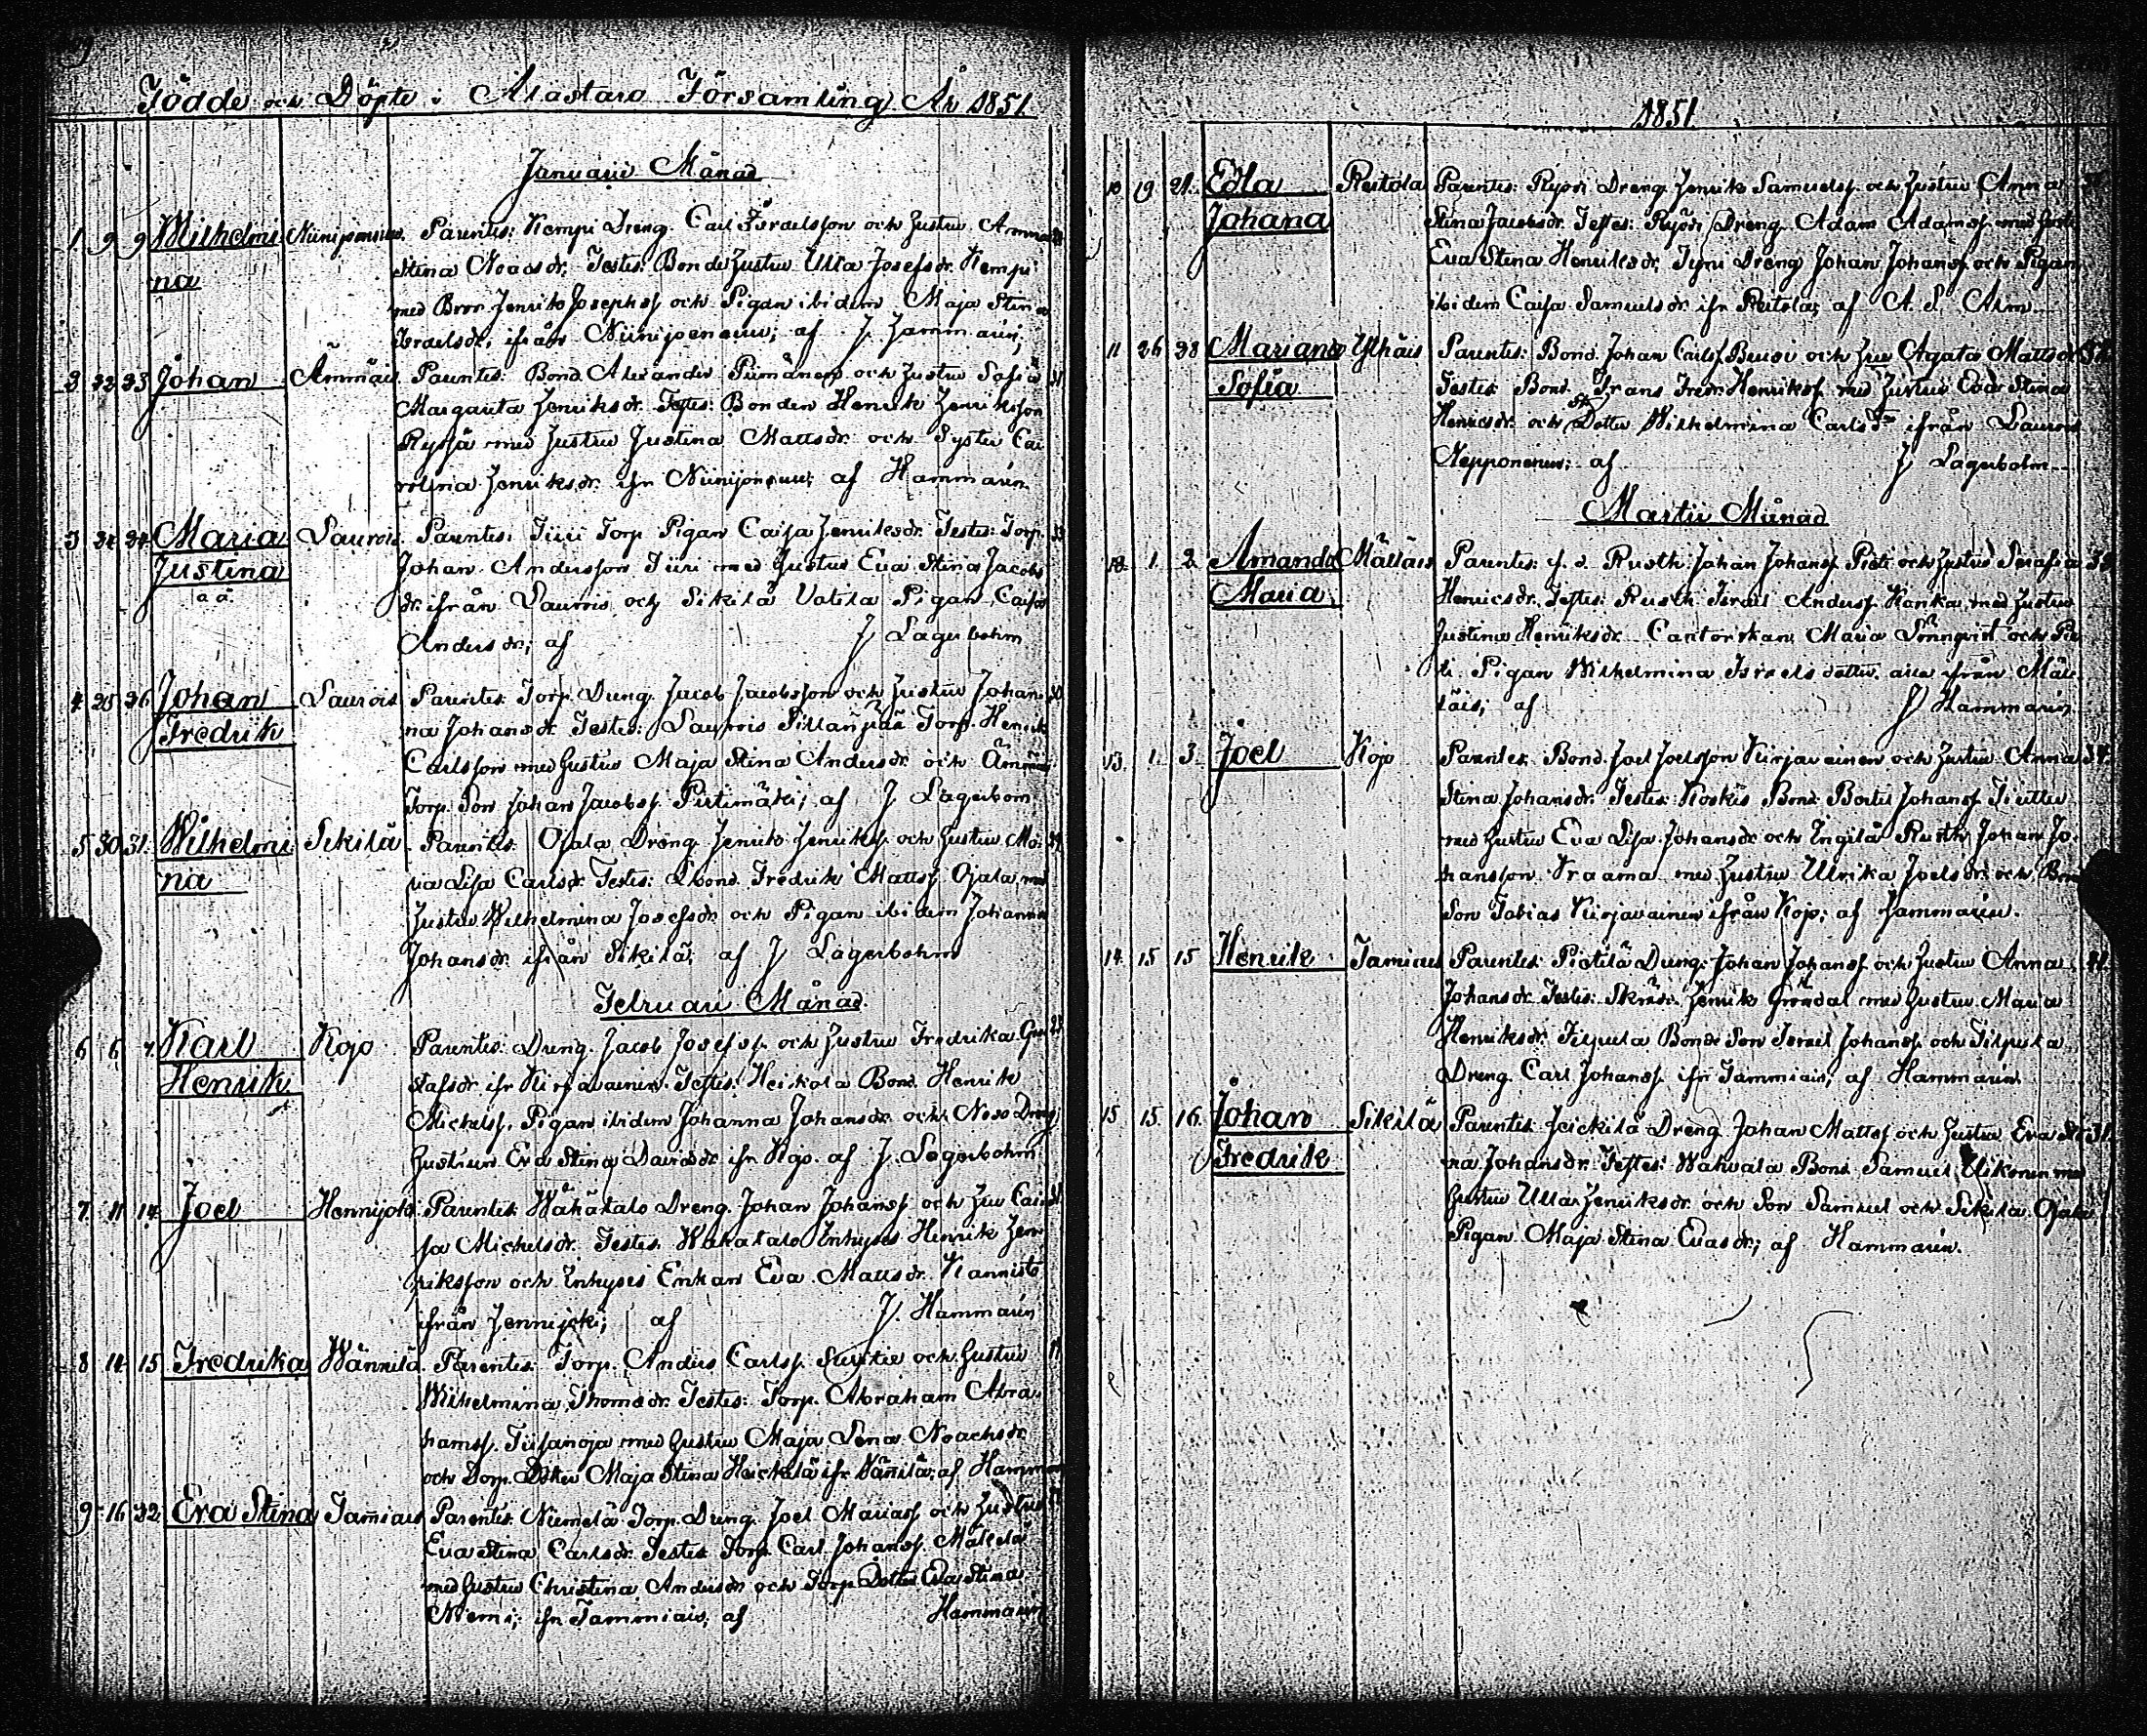 Födde och Döpte i Alastaro Församling År 1851.
Januarii Månad
1 9 9 Wilhelmi Niinijoensuu. Parentes: Kempi Dreng. Carl Israelsson och hustru Anna
na Stina Noaсsdr. Testes: Bonde hustru Ulla Josefsdr. Kempi
med Bror Henrik Josephss. och Pigan ibidem Maja Stina
Israelsdr. ifrån Niinijoensuu; af J. Hammarin;
2 22 23 Johan Ämmäis. Parentes: Bond. Alexander Piimänen och hustru Sofia 31
Margareta Henriksdr. Testes: Bonden Henrik Henriksson
Ryssä med hustru Justina Mattsdr. och Syster Ca
rolina Henriksdr. ifr Niinijonsuu; af Hammarin
3 24 24 Maria Laurois Parentes: Tiiri Torp. Pigan Caisa Henriksdr. Testes: Torp. 33
Justina Johan Andersson Tiiri med hustru Eva Stina Jacobs
a ä. dr. ifrån Laurois och Sikilä Uotila Pigan Caisa
Andersdr; af J Lagerbohm
4 25 26 Johan Laurois Parentes: Torp. Dreng. Jacob Jacobsson och hustru Johan
Fredrik na Johansdr. Testes: Laurois Sillanpää Torp. Henrik
Carlsson med hustru Maja Stina Andersdr och Ämmäis
Torp. Son Johan Jacobss. Pietimäki; af J Lagerbom
5 30 31. Wilhelmi Sikilä Parentes: Ojala Dreng. Henrik Henrikss. och hustru Ma
na ria Lisa Carlsdr. Testes: Lbond. Fredrik Mattss. Ojala, med
hustru Wilhelmina Josefsdr. och Pigan ibidem Johanna
Johansdr. ifrån Sikilä, af J Lagerbohm
Februari Månad.
6 6 7. Karl Kojo Parentes: Dreng. Jacob Josefss. och hustru Fredrika Gus
Henrik tafsdr. ifr Kirjavainen. Testes: Heikola Bond. Henrik
Michelss. Pigan ibidem Johanna Johansdr. och Noso Dreng
hustrun Eva Stina Davidsdr. ifr Kojo. af J. Lagerbohm
7. 11 14 Joel Hennijoki. Parentes: Wähätalo Dreng. Johan Johanss. och hru Cai
sa Michelsdr. Testes. Wähätalo Inhyses Henrik Hen
riksson och Inhyses Enkan Eva Mattsdr. Kannisto
ifrån Hennijoki; af J. Hammarin
8 14 15 Fredrika Wännilä. Parentes: Torp. Anders Carlss. och hustru
Wilhelmina Thomsdr. Testes: Torp. Abraham Abra
hamss. Tiisanoja med hustru Maja Lena Noachsdr.
och Torp. Dotter Maja Stina Heickilä ifr Vännilä; af Hammarin
9 16 22 Eva Stina Tam̄iais Parentes: Niemelä Torp. Dreng. Joel Mariass. och hustru
Eva Stina Carlsdr. Testes Torp. Carl Johanss. Mäkelä
med hustru Christina Andersdr och Torp. Dotter Eva Stina
Niemi; ifr Tammiais, af Hammarin
1851.
10 19 21. Edla Reitola Parentes: Ryödi Dreng. Henrik Samuelss. och hustru Anna
Johana Stina Jacobsdr. Testes: Ryödi Dreng. Adam Adamss. med hustr.
Eva Stina Henriksdr, Dreng Johan Johanss. och Pigan
ibidem Caisa Samuelsdr. ifr Reitola; af A. L. Alm
11 26 28 Mariana Ylhäis Parentes: Bond. Johan Carlss. och hru Agata Mattsdr
Sofia Testes: Bond. Frans Fredr. Henrikss. med hustru Eva Stina
Henricsdr. och Dotter Wilhelmina Carlsdr ifrån Laurois
Nepponenu; af J Lagerbohm
Martii Månad
12. 1. 2. Amanda Mältäis Parentes: f. d. Rusth. Johan Johanss. Pieti och hustru Serafia
Maria Henricsdr. Testes: Rusth. Israel Anderss. Kanka, med hustru
Justina Henriksdr. Cantorskan Maria Lönnqvist och Pie
ti Pigan Wilhelmina Israelsdotter, alla ifrån Mäl
täis; af J Hammarin
13. 1. 3. Joel Kojo Parentes: Bond. Joel Joelsson Kirjavainen och hustru Anna 34.
Stina Johansdr. Testes: Koskis Bond. Bertil Johanss.
med hustru Eva Lisa Johansdr och Ingilä Rusth. Johan Jo
hansson Vraama med hustru Ulrika Joelsdr. och Bond
Son Tobias Kirjavainen ifrån Kojo; af Hammarin.
14. 15 15 Henrik Tamiais Parentes: Pietilä Dreng: Johan Johanss. och hustru Anna
Johansdr. Testes: Skräd. Henrik Gröndal med hustru Maria
Henriksdr. Filpula Bonde Son Israel Johanss. och Filpula
Dreng. Carl Johanss. ifr Tammiais; af Hammarin.
15 15. 16. Johan Sikilä Parentes: Heickilä Dreng. Johan Mattss. och hustru Eva Sti 31.
Fredrik na Johansdr. Testes: Wahvala Bond Samuel Uikonen med
hustru Ulla Henriksdr. och Son Samuel och Sikilä Ojala
Pigan Maja Stina Evasdr; af Hammarin.